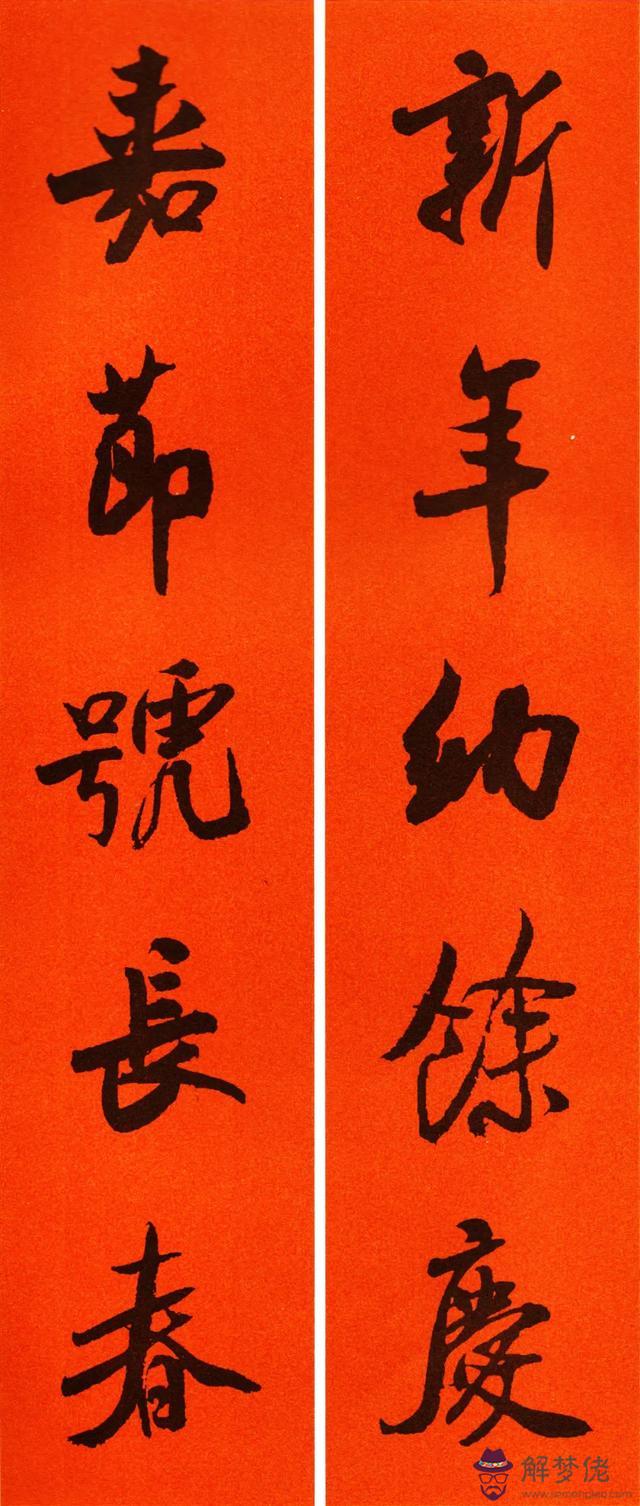 新年納餘慶
嘉節號長春
解梦佬